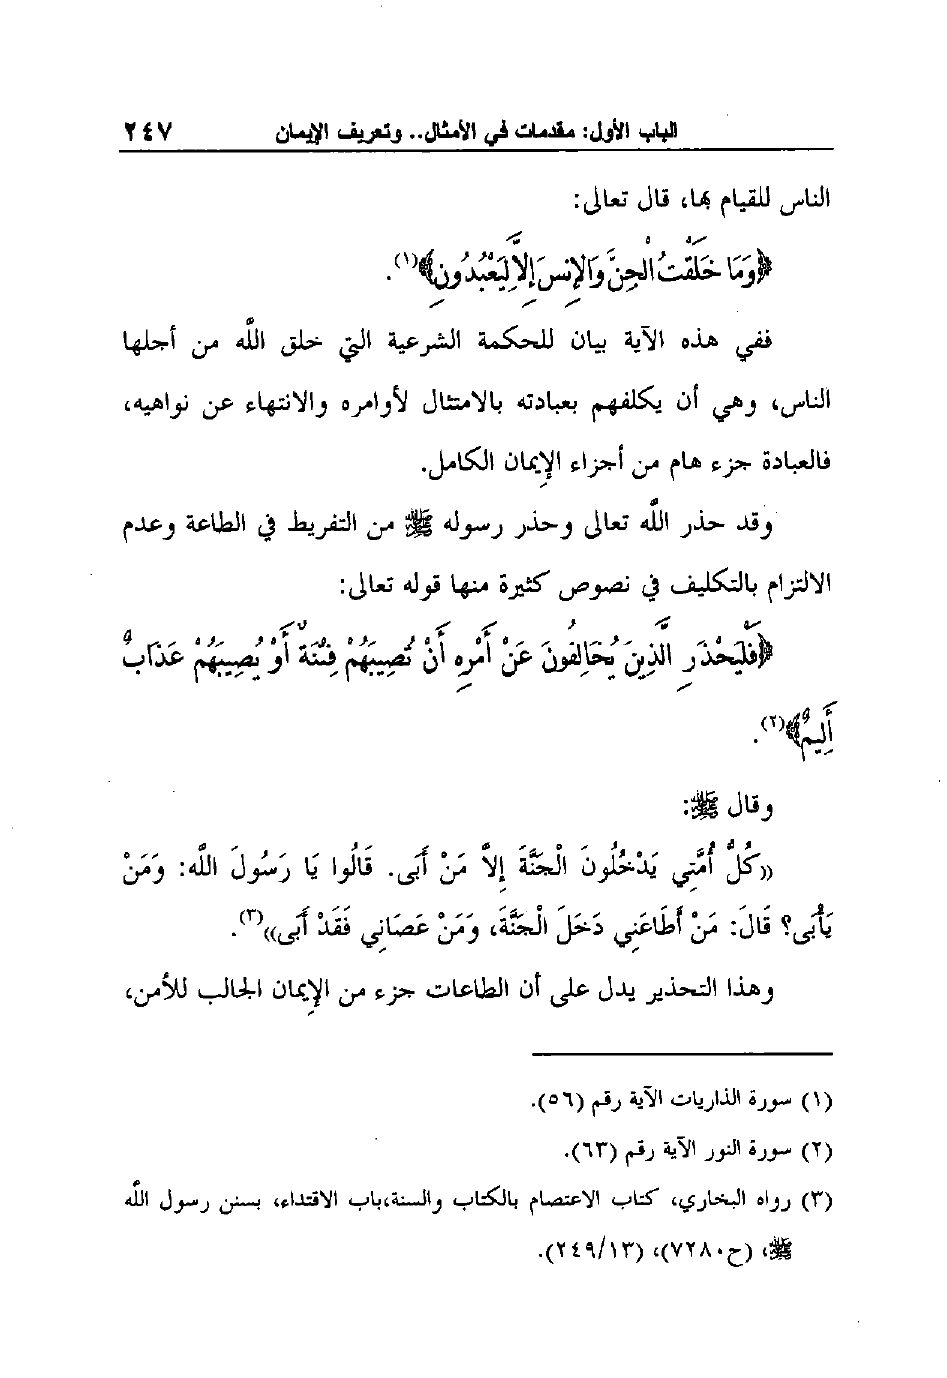 الباب الأول: مقدمات في الأمثال.. وتعريف الإيمان ٢٤٧
الناس للقيام بها، قال تعالى:
﴿وَمَا خَلَقْتُ الْجِنَّ وَالإِنسَ إِلاَّ لِيَعْبُدُونِ﴾(١).
ففي هذه الآية بيان للحكمة الشرعية التي خلق الله من أجلها
الناس، وهي أن يكلفهم بعبادته بالامتثال لأوامره والانتهاء عن نواهيه،
فالعبادة جزء هام من أجزاء الإيمان الكامل.
وقد حذر الله تعالى وحذر رسوله ﷺ من التفريط في الطاعة وعدم
الالتزام بالتكليف في نصوص كثيرة منها قوله تعالى:
﴿فَلْيَحْذَرِ الَّذِينَ يُخَالِفُونَ عَنْ أَمْرِهِ أَنْ تُصِيبَهُمْ فِتْنَةٌ أَوْ يُصِيبَهُمْ عَذَابٌ
أَلِيمٌ﴾(٢).
وقال ﷺ:
((كُلُّ أُمَّتِي يَدْخُلُونَ الْجَنَّةَ إِلاَّ مَنْ أَبَى. قَالُوا يَا رَسُولَ الله: وَمَنْ
يَأْبَى؟ قَالَ: مَنْ أَطَاعَنِي دَخَلَ الْجَنَّةَ، وَمَنْ عَصَانِي فَقَدْ أَبَى))(٣).
وهذا التحذير يدل على أن الطاعات جزء من الإيمان الجالب للأمن،
(١) سورة الذاريات الآية رقم (٥٦).
(٢) سورة النور الآية رقم (٦٣).
(٣) رواه البخاري، كتاب الاعتصام بالكتاب والسنة،باب الاقتداء، بسنن رسول الله
ﷺ، (ح٧٢٨٠)، (٢٤٩/١٣).